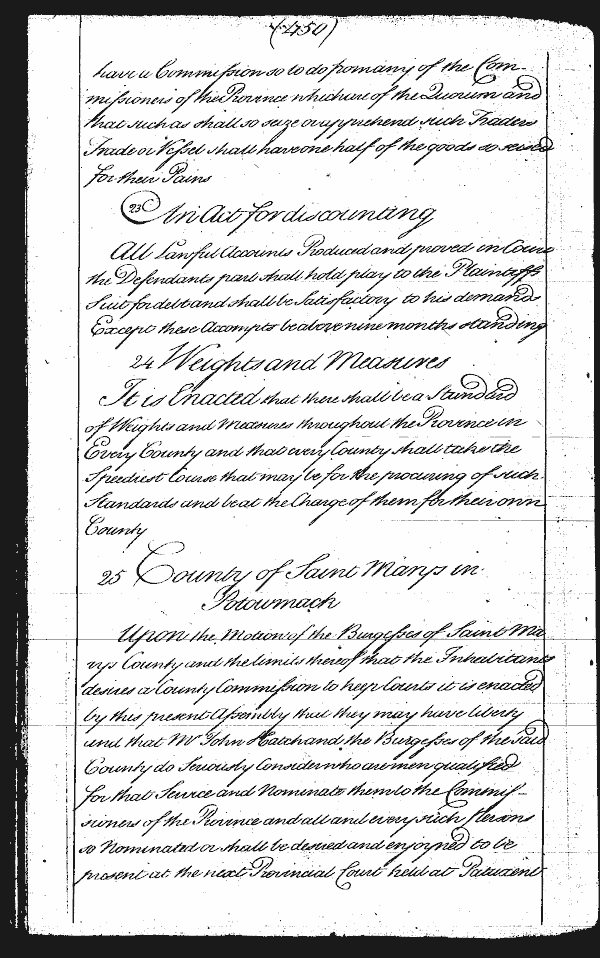 (450)
have a Commission so to do from any of the Com-
missioners of the Province which are of the Quorum and
that such as shall so seize or apprehend such Traders
Trade or Vessel shall have one half of the goods so seized
for their Pains
23 An Act for discounting
All Lawful Accounts Produced and proved in Court
the Defendants part shall hold play to the Plaintiffs
Suit for debt and shall be Satisfactory to his demands
Except these Accompts be above nine months standing
24 Weights and Measures
It is Enacted that there shall be a Standard
of Weights and Measures throughout the Province in
Every County and that every County shall take the
Speediest Course that may be for the procuring of such
Standards and be at the Charge of them for their own
County
25 County of Saint Marys in
Potowmack
Upon the Motion of the Burgesses of Saint Ma
rys County and the limits thereof that the Inhabitants
desires a County Commission to keep Courts it is enacted
by this present Assembly that they may have liberty
and that Mr John Hatch and the Burgesses of the said
County do Seriously Consider who are men qualified
for that Service and Nominate them to the Commis-
sioners of the Province and all and every such Persons
so Nominated or shall be desired and enjoyned to be
present at the next Provincial Court held at Patuxent